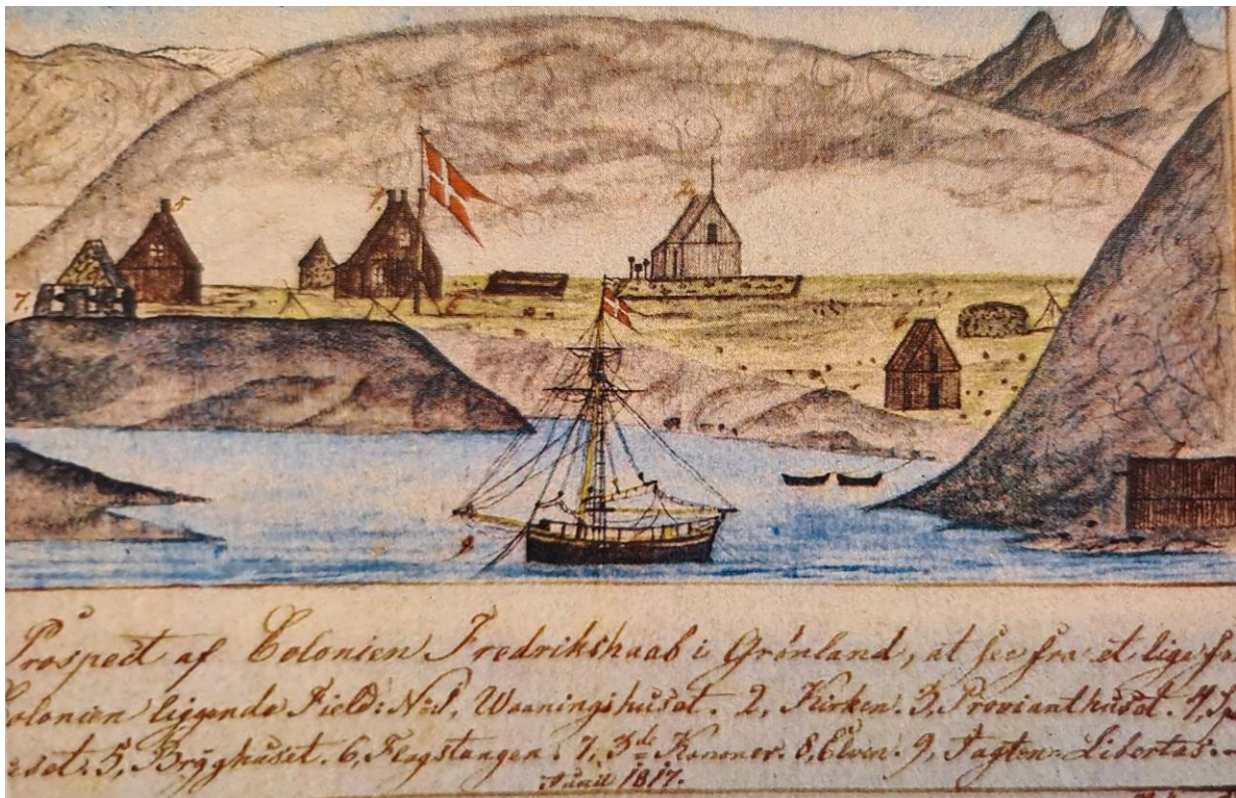 5
7.
6
2
9
Prospect af Colonien Fredrikshaab i Grønland, at see fra et lige
Colonien liggende Field: No 1, Waaningshuset. 2, Kirken. 3, Provianthuset. 4,
5, Bryghuset. 6, Flagstangen. 7, 3de Kanoner. 8, Elven. 9, Jagten Libertas.
Junii 1817.